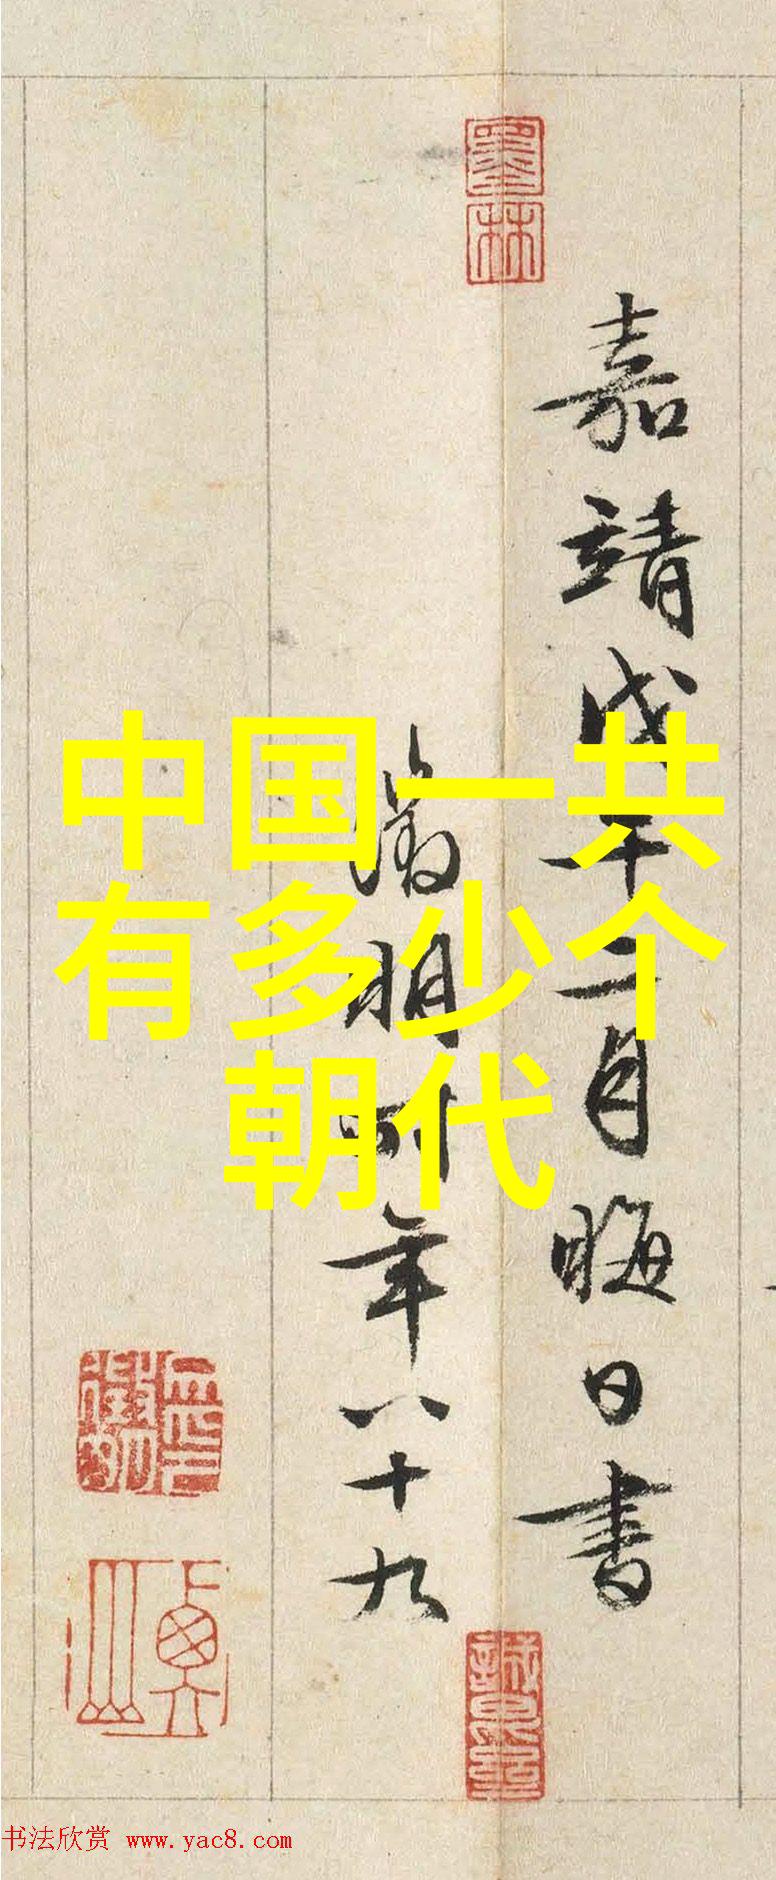 嘉靖戊午二月晦日书
徵明时年八十九
中国一共
有多少个
朝代
墨林
书法欣赏 www.yac8.com